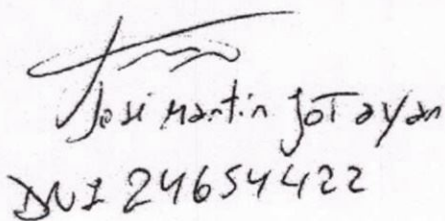 José Martin Jotayan
DNI 24654422